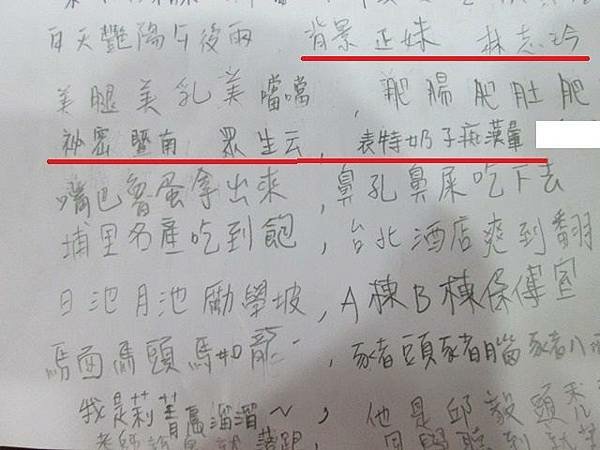 白天艷陽午後雨 背景正妹 林志玲
美腿美乳美噹噹，肥腸肥肚肥
祕密暨南 眾生云，表特奶子痴漢暈
嘴巴魯蛋拿出來，鼻孔鼻屎吃下去
埔里名產吃到飽，台北酒店爽到翻
日池月池勵學坡，A棟B棟保傳室
馬面馬頭馬如龍，豬頭豬腦豬八
我是莉菁盧溜溜～，他是邱毅頭禿